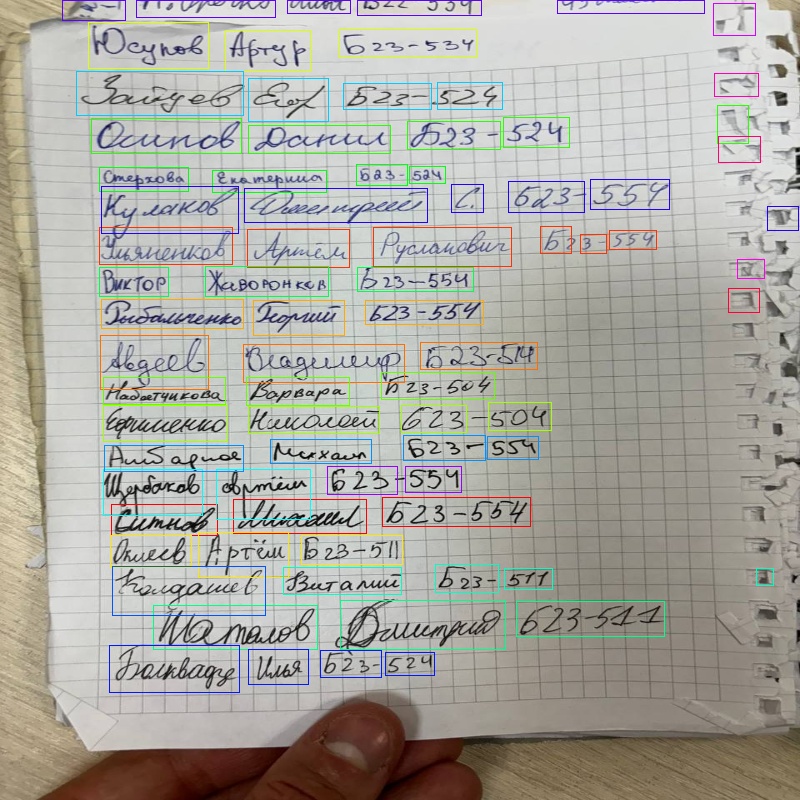 Юсупов Артур Б23-534
Зайцев Егор Б23-524
Осипов Данил Б23-524
Стерхова Екатерина Б23-524
Куланов Дмитрий С. Б23-554
Ульяненков Артём Русланович Б23-554
Виктор Жаворонков Б23-554
Рыбальченко Георгий Б23-554
Авдеев Владимир Б23-514
Набатчикова Варвара Б23-504
Ефименко Николай Б23-504
Амбарное Михаил Б23-554
Щербаков Артём Б23-554
Ситнов Михаил Б23-554
Оклеев Артём Б23-511
Колдашев Виталий Б23-511
Шаталов Дмитрий Б23-511
Болквадзе Илья Б23-524